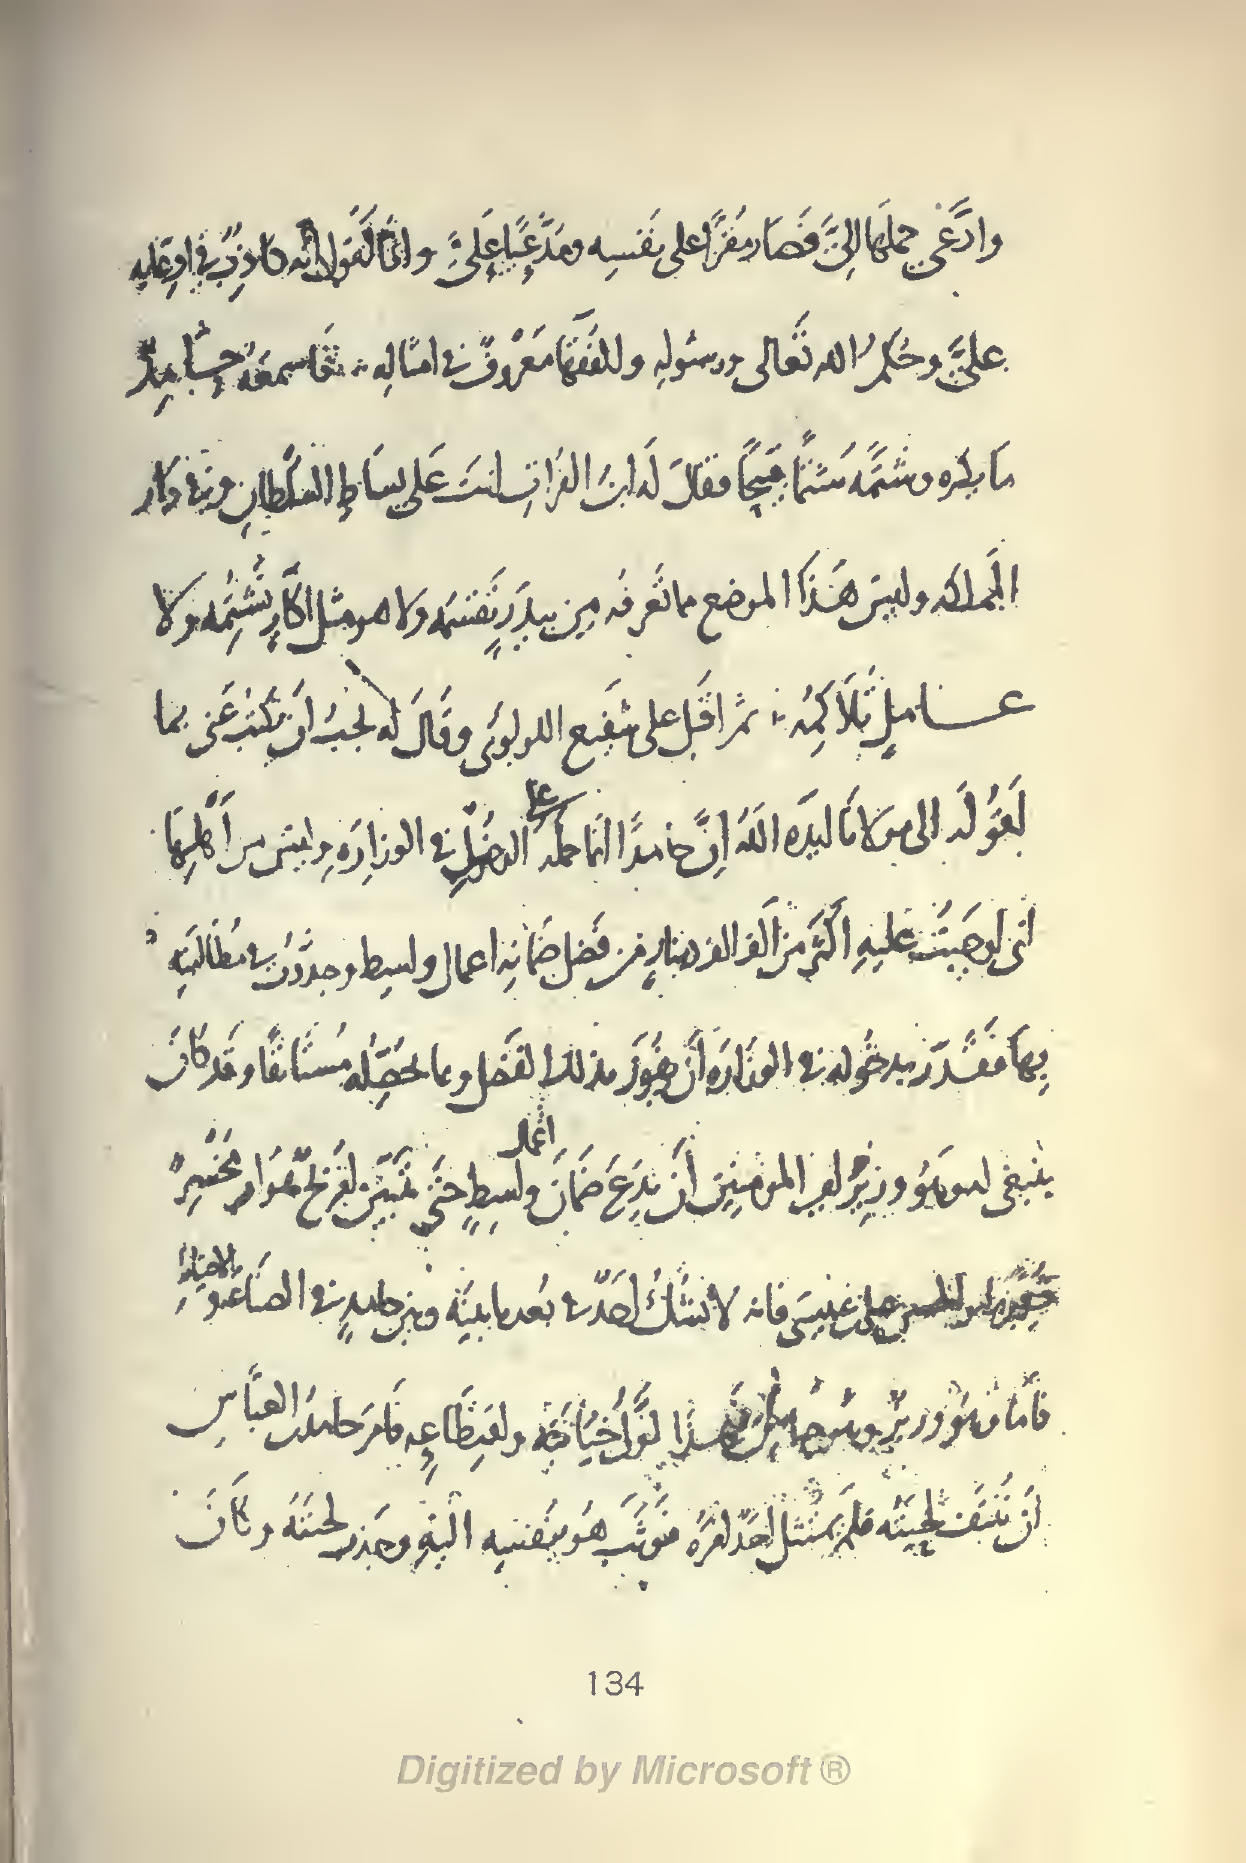 وادَّعى حملها اليَّ فصار مقرًّا على نفسه ومدَّعيًا عليَّ وانا اقول انه كاذب في ادعايه
عليَّ وحُكم الله تعالى ورسوله والفقها معروفٌ في امثاله ثم فاسمعه حامد
ما يكره وشتمه شتمًا قبيحًا فقال له ابن الفرات انت على بساط السلطان وفي دار
المملكه وليس هذا الموضع مما تعرفه من بيدر تقسمه ولا هو مثل اكّارٍ تشتمه ولا
عاملٍ تلاكمه ثم اقبل على شفيع اللولوى وقال له يجب ان تكتب عنى بما
اقوله الى مولانا ايده الله انَّ حامدًا انما حمله على الدخول في الوزاره وليس من اهلها
انى اوجبت عليه اكثر من الف الف دينارٍ من فضل ضمانه اعمال واسط وجددت في مطالبته
بها فقدَّر بدخوله في الوزاره ان يفوز بذلك الفضل وبما يحصّله مستانفًا وقد كان
ينبغى لمن هو وزير امير المومنين ان يدع ضمان اعمال واسط حتى يتبين أيربح هو ام يخسر
على بن عيسى فانه لا يشك احدٌ في بعد ما بينه وبين حامدٍ في الصناعه والاحتياط
فامَّا من هو وزير هذا اوّل خيانته واقتطاعه فامر حامد بن العباس
ان تنتف لحيته فلم يمتثل احدٌ امره فوثب هو بنفسه اليه وجذب لحيته وكان
134
Digitized by Microsoft ®